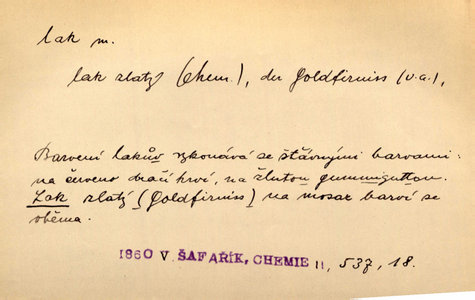 lak m.
lak zlatý (Chem.), der Goldfirniss (v. a.),
Barvení lakův vykonává se šťávnými barvami:
na červeno dračí krví, na žluto gummiguttou.
Lak zlatý (Goldfirniss) na mosaz barví se
oběma.
1860 V. ŠAFAŘÍK, CHEMIE II, 537, 18.